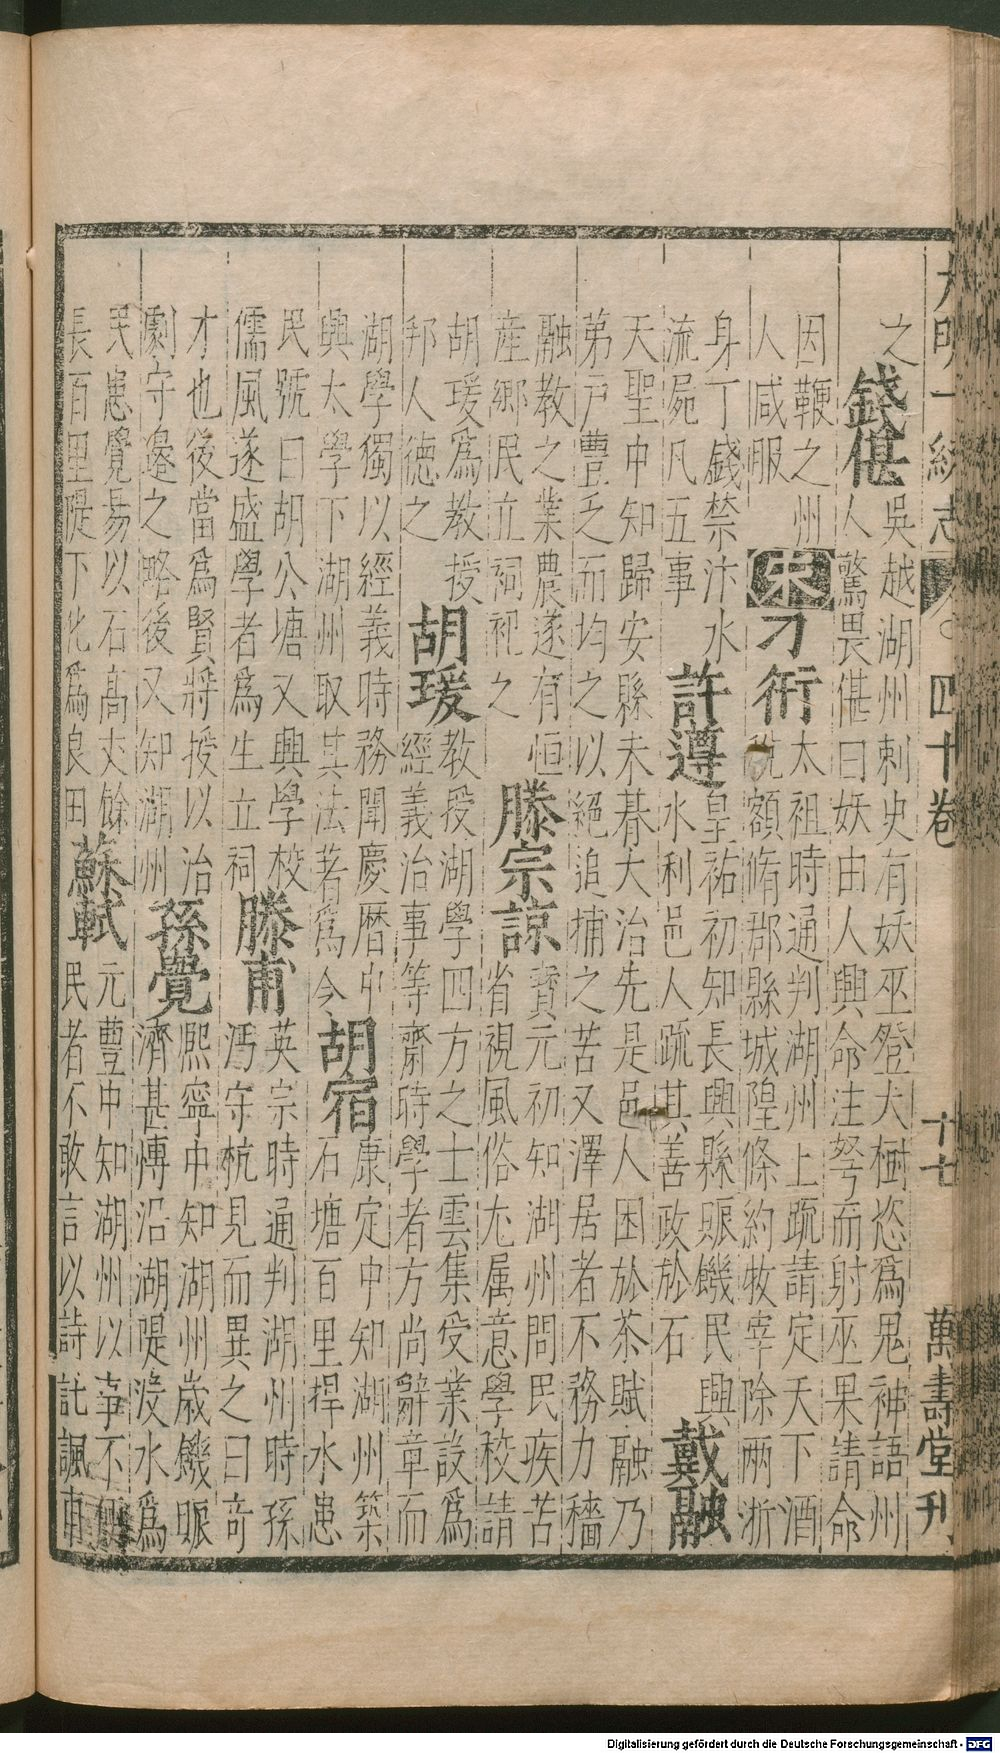 大明一統志 四十卷 十七 萬壽堂刊
之
錢偘
吳越湖州刺史有妖巫登大樹恣爲鬼神語州
人驚畏偘曰妖由人興命注弩而射巫果請命
因鞭之州
人咸服
宋刁衎
太祖時通判湖州上䟽請定天下酒
稅額脩郡縣城隍條約牧宰除兩浙
身丁錢禁汴水
流屍凡五事
許遵
皇祐初知長興縣賑饑民興
水利邑人䟽其善政於石
戴融
天聖中知歸安縣未朞大治先是邑人困於茶賦融乃
第戶豊乏而均之以絕追捕之苦又澤居者不務力穡
融教之業農遂有恒
産鄉民立祠祀之
滕宗諒
寳元初知湖州問民疾苦
省視風俗尤属意學校請
胡瑗爲教授
邦人徳之
胡瑗
教授湖學四方之士雲集受業設爲
經義治事等齋時學者方尚辭章而
湖學獨以經義時務聞慶曆中
興太學下湖州取其法著爲令
胡宿
康定中知湖州築
石塘百里捍水患
民號曰胡公塘又興學校
儒風遂盛學者爲生立祠
滕甫
英宗時通判湖州時孫
沔守杭見而異之曰奇
才也後當爲賢將授以治
劇守邊之略後又知湖州
孫覺
熈寧中知湖州歲饑賑
濟甚慱沿湖隄沒水爲
民患覺易以石髙丈餘
長百里隄下化爲良田
蘇軾
元豊中知湖州以事不便
民者不敢言以詩託諷
Digitalisierung gefördert durch die Deutsche Forschungsgemeinschaft - DFG